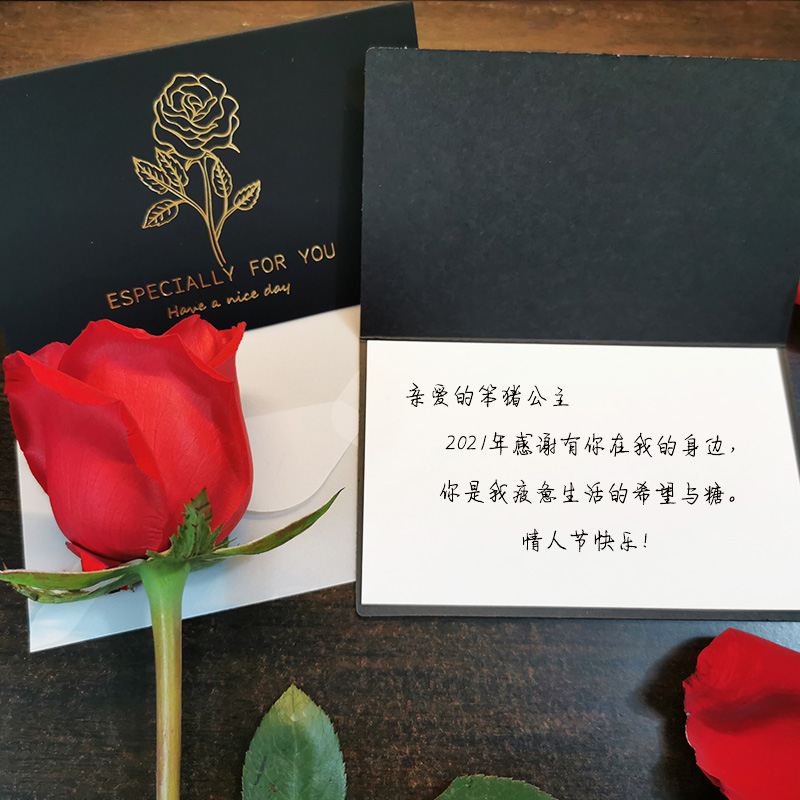 ESPECIALLY FOR YOU
Have a nice day
亲爱的笨猪公主
2021年感谢有你在我的身边，
你是我疲惫生活的希望与糖。
情人节快乐！